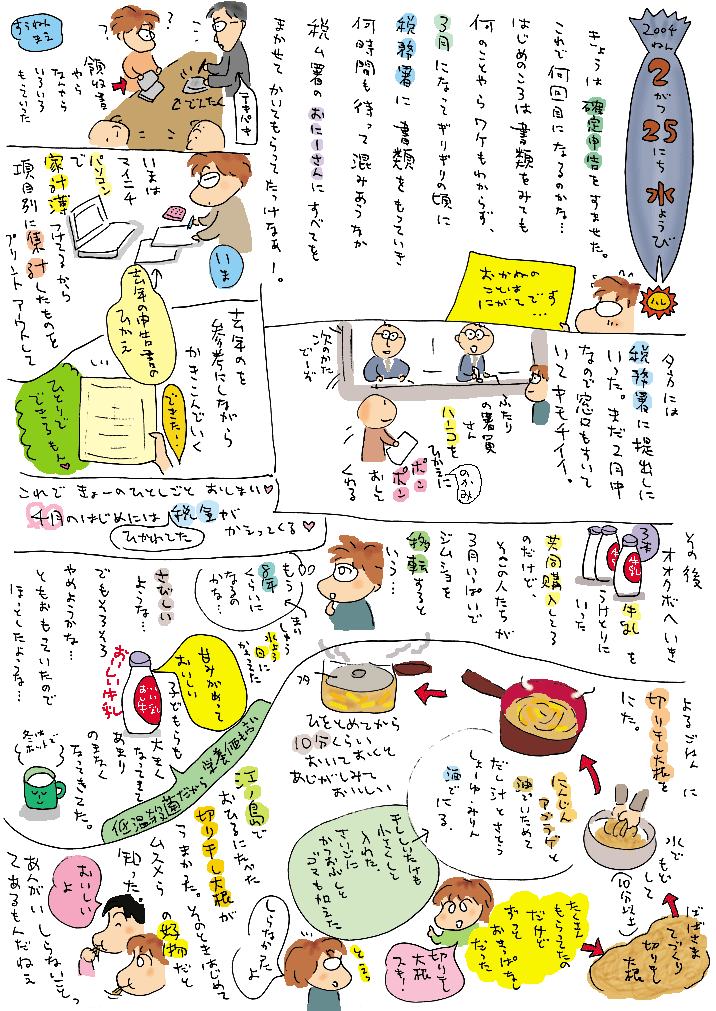 2004
ねん
2
がつ
25
にち
水
ようび
ハレ
きょうは 確定申告をすませた。
これで何回目になるのかな…
はじめのころは書類をみても
何のことやらワケもわからず、
3月になってギリギリの頃に
税務署に書類をもっていき
何時間も待って混みあうなか
税ム署のおにーさんにすべてを
まかせてかいてもらってたっけなぁー。
おかねの
ことは
にがてです
…
すうねん
まえ
領収書
やら
なんやら
いろいろ
もらいいた
でんたく
てきぱき
いまは
マイニチ
パソコン
で
家計簿つけてるから
項目別に集計したものを
プリントアウトして
いま
去年の申告書の
ひかえ
去年のを
参考にしながら
かきこんでいく
できたー
ひとりで
できるもん♥
これで きょーのひとしごと おしまい♥
4月のはじめには税金が
ひかれした
がえってくる♥
夕方には
税務署に提出しに
いった。まだ2月中
なので窓口もすいて
いてキモチイイ。
次のかた
どーぞ
ふたり
の署員
さん
ハンコを
ひかえに
のかみ
ポン
ポン
おして
くれる
その後
オオクボへいき
牛乳を
うけとりに
いった
3本
牛乳
共同購入してる
のだけど、
そこの人たちが
3月いっぱいで
ジムショを
移転すると
いう…
もう
8年
くらいに
なるの
かな…
まいしゅう
水よう
日に
かよってた
さびしい
ような…
でもそろそろ
やめようかな…
ともおもっていたので
ほっとしたような…
おいしい牛乳
甘みがあって
おいしい
子どもらも
大きく
なってきて
あまり
のまなく
なってきてた。
冬は
ホットで
低温殺菌だから栄養価も高い
よるごはんに
切り干し大根を
にた。
ばばさま
てづくり
切り干し
大根
水で
もどして
(10分以上)
にんじん
アブラゲと
油でいためて
だし汁とさとう
しょーゆ・みりん
酒でにる。
フタ
ひをとめてから
10分くらい
おいておくと
あじがしみて
おいしい
干ししいたけも
小さくし
入れた
さいごに
かつおぶしと
ゴマも加えた
たくさん
もらってたの
だけど
ずっと
おきっぱなし
だった
切り干し
大根
スキ!
江ノ島で
おひるにたべた
切り干し大根が
うまかった。そのときはじめて
ムスメらの好物だと
知った。
あんがいしらないことっ
てあるもんだねえ
しらなかった
よ
おいしい
よ